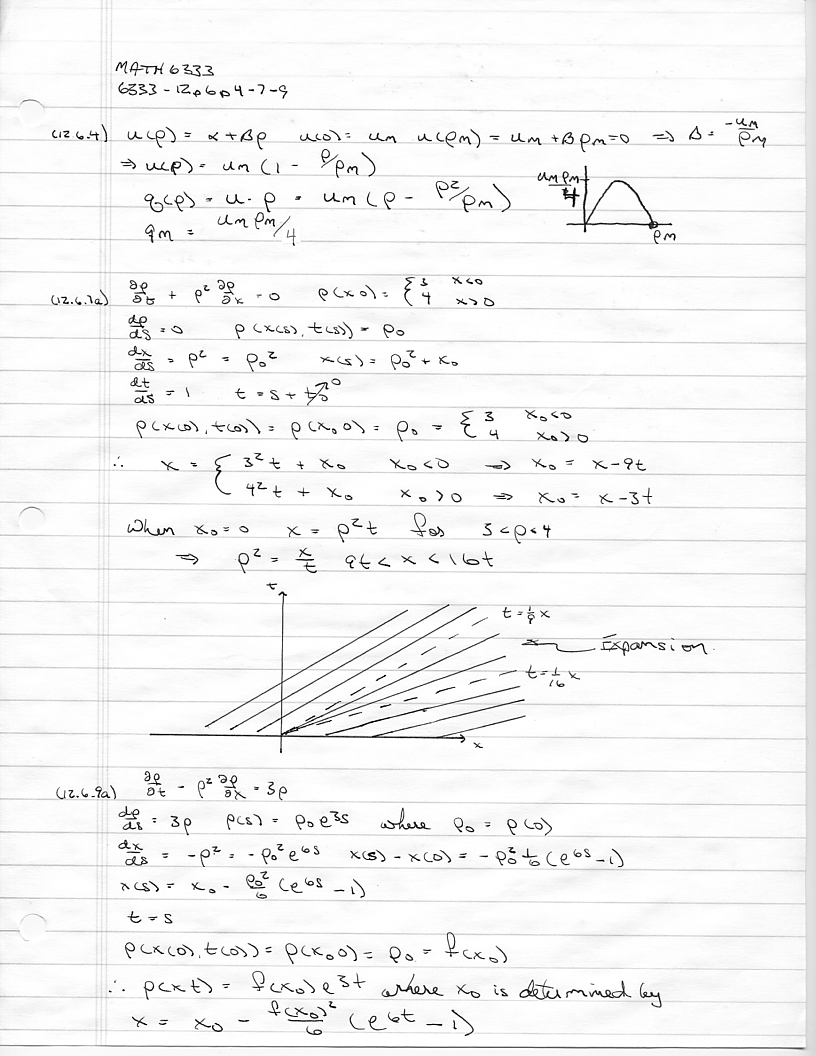 MATH 6333
6333-12p6p4-7-9
(12.6.4) u(ρ) = α+βρ u(0) = um u(ρm) = um + β ρm = 0 ⇒ Δ = -um/ρm
⇒ u(ρ) = um (1 - ρ/ρm)
q(ρ) = u·ρ = um (ρ - ρ²/ρm)
qm = um ρm/4
um ρm/4
ρm
(12.6.7a) ∂ρ/∂t + ρ² ∂ρ/∂x = 0 ρ(x 0) = { 3 x<0
4 x>0
dρ/ds = 0 ρ(x(s), t(s)) = ρ0
dx/ds = ρ² = ρ0² x(s) = ρ0² + x0
dt/ds = 1 t = s + t0 0
ρ(x(0), t(0)) = ρ(x0 0) = ρ0 = { 3 x0<0
4 x0>0
∴ x = { 3² t + x0 x0<0 ⇒ x0 = x-9t
4² t + x0 x0>0 ⇒ x0 = x-3t
When x0=0 x = ρ²t for 3<ρ<4
⇒ ρ² = x/t 9t < x < 16t
t
t = 1/9 x
Expansion.
t = 1/16 x
x
(12.6.9a) ∂ρ/∂t - ρ² ∂ρ/∂x = 3ρ
dρ/ds = 3ρ ρ(s) = ρ0 e^3s where ρ0 = ρ(0)
dx/ds = -ρ² = -ρ0² e^6s x(s) - x(0) = -ρ0² 1/6 (e^6s - 1)
x(s) = x0 - ρ0²/6 (e^6s - 1)
t = s
ρ(x(0), t(0)) = ρ(x0 0) = ρ0 = f(x0)
∴ ρ(x t) = f(x0) e^3t where x0 is determined by
x = x0 - f(x0)²/6 (e^6t - 1)